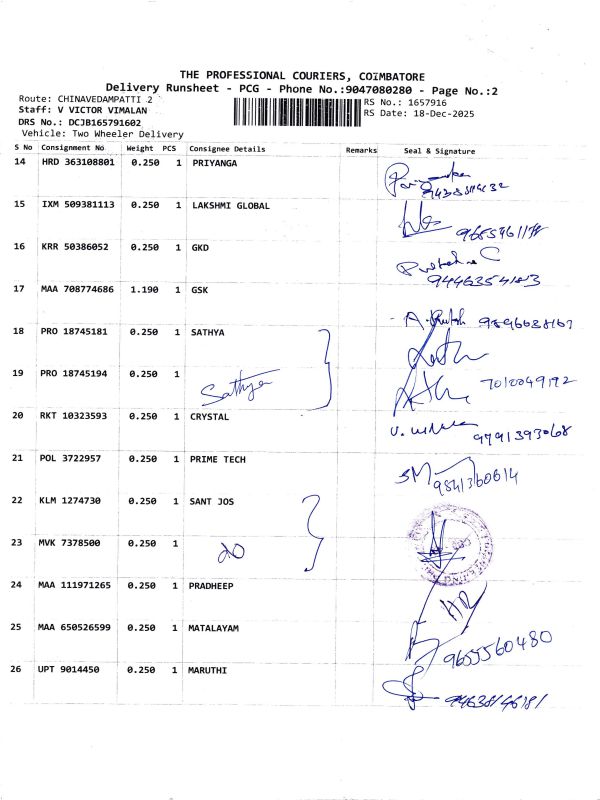 THE PROFESSIONAL COURIERS, COIMBATORE
Delivery Runsheet - PCG - Phone No.:9047080280 - Page No.:2
Route: CHINAVEDAMPATTI 2
Staff: V VICTOR VIMALAN
DRS No.: DCJB165791602
Vehicle: Two Wheeler Delivery
RS No.: 1657916
RS Date: 18-Dec-2025
S No Consignment No Weight PCS Consignee Details Remarks Seal & Signature
14 HRD 363108801 0.250 1 PRIYANGA
15 IXM 509381113 0.250 1 LAKSHMI GLOBAL
16 KRR 50386052 0.250 1 GKD
9446354183
17 MAA 708774686 1.190 1 GSK
18 PRO 18745181 0.250 1 SATHYA
19 PRO 18745194 0.250 1 Sathya 7010049192
20 RKT 10323593 0.250 1 CRYSTAL
9791393068
21 POL 3722957 0.250 1 PRIME TECH
9841360614
22 KLM 1274730 0.250 1 SANT JOS
23 MVK 7378500 0.250 1
24 MAA 111971265 0.250 1 PRADHEEP
25 MAA 650526599 0.250 1 MATALAYAM
9655560480
26 UPT 9014450 0.250 1 MARUTHI